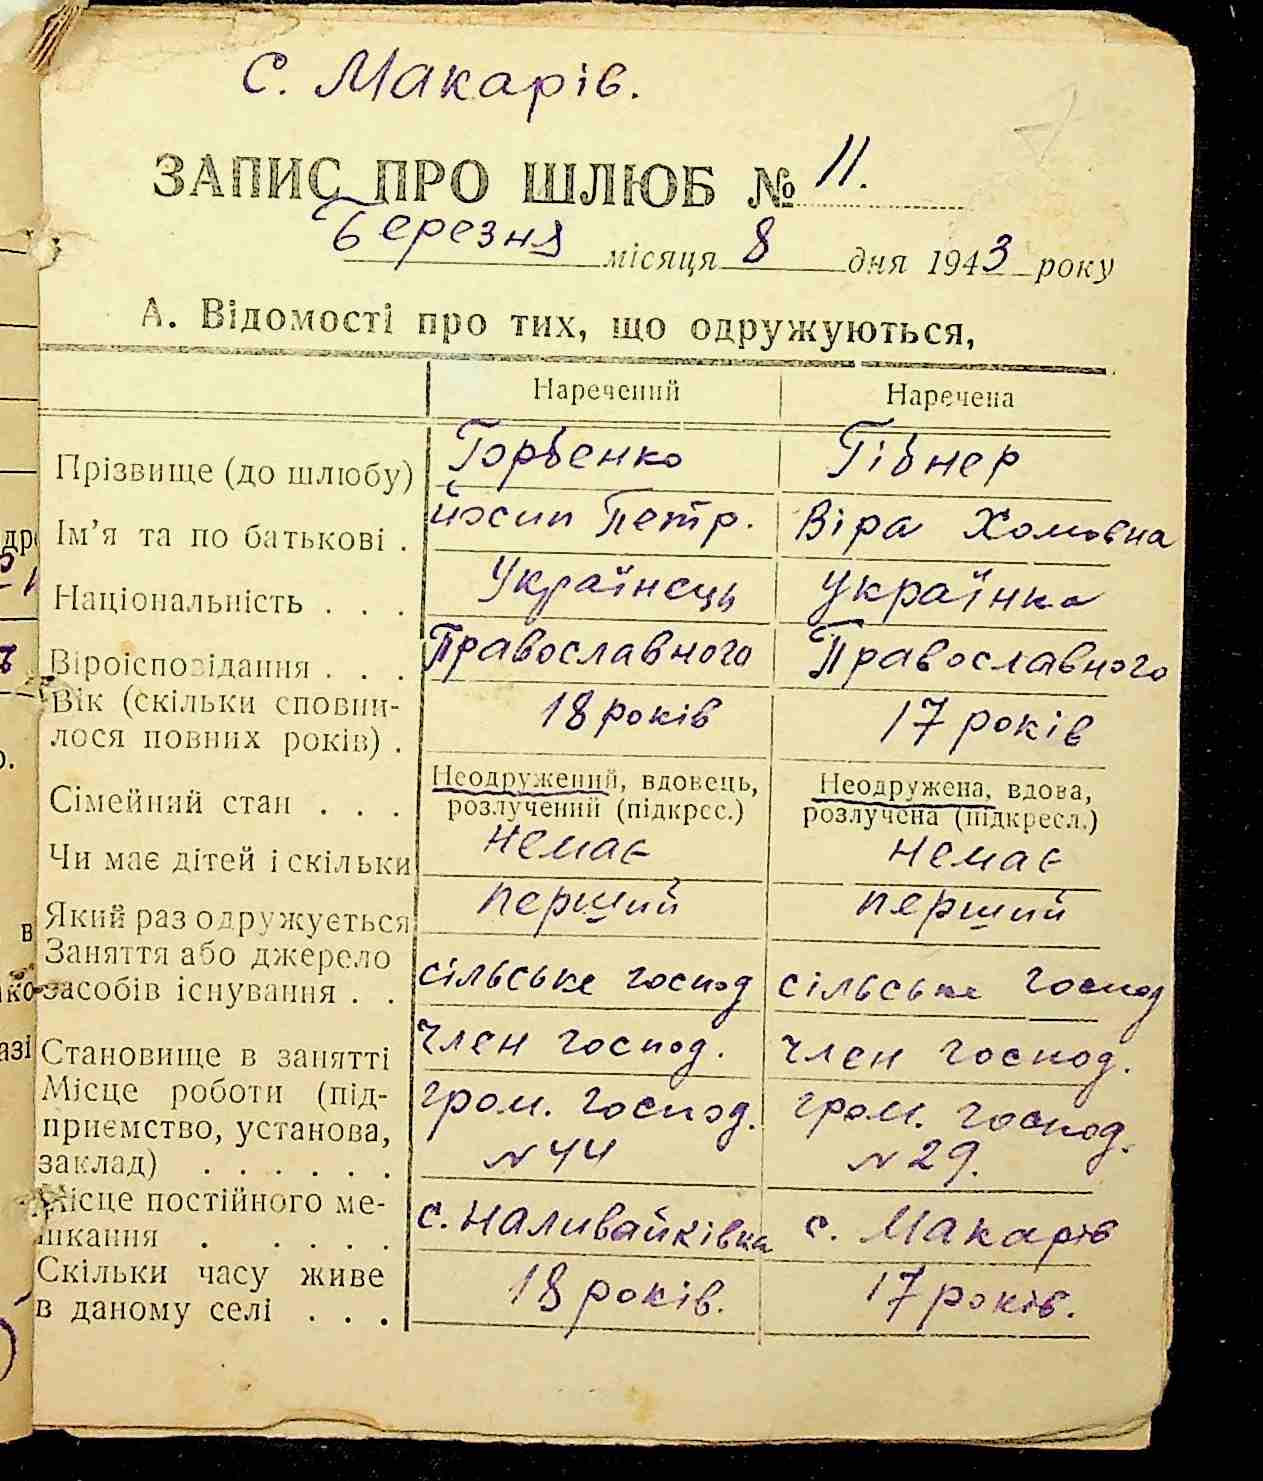 с. Макарів.
ЗАПИС ПРО ШЛЮБ № 11.
Березня місяця 8 дня 1943 року
А. Відомості про тих, що одружуються,
Наречений Наречена
Прізвище (до шлюбу) Горбенко Гібнер
Ім'я та по батькові . Йосип Петр. Віра Хомовна
Національність . . . Українець Українка
Віроісповідання . . . Православного Православного
Вік (скільки сповни-
лося повних років) . 18 років 17 років
Сімейний стан . . . Неодружений, вдовець, розлучений (підкрес.) Неодружена, вдова, розлучена (підкресл.)
Чи має дітей і скільки немає немає
Який раз одружується перший перший
Заняття або джерело
засобів існування . . сільське господ сільське господ
Становище в занятті член господ. член господ.
Місце роботи (під-
приємство, установа,
заклад) . . . . . . гром. господ. N 44 гром. господ. N 29.
Місце постійного ме-
шкання . . . . . с. Наливайківка с. Макарів
Скільки часу живе
в даному селі . . . 18 років. 17 років.